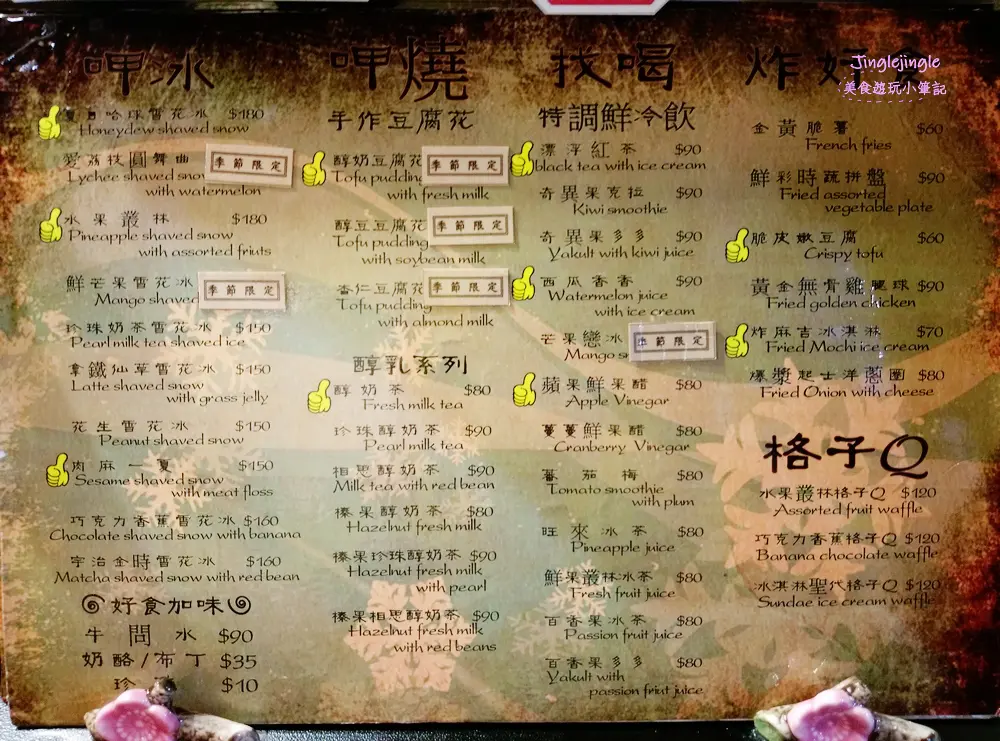 呷冰
夏日哈球雪花冰 $180
Honeydew shaved snow
愛荔枝圓舞曲 季節限定
Lychee shaved snow
with watermelon
水果叢林 $180
Pineapple shaved snow
with assorted friuts
鮮芒果雪花冰 季節限定
Mango shaved
珍珠奶茶雪花冰 $150
Pearl milk tea shaved ice
拿鐵仙草雪花冰 $150
Latte shaved snow
with grass jelly
花生雪花冰 $150
Peanut shaved snow
肉麻一夏 $150
Sesame shaved snow
with meat floss
巧克力香蕉雪花冰 $160
Chocolate shaved snow with banana
宇治金時雪花冰 $160
Matcha shaved snow with red bean
好食加味
牛問水 $90
奶酪/布丁 $35
珍 $10
呷燒
手作豆腐花
醇奶豆腐花 季節限定
Tofu pudding
with fresh milk
醇豆豆腐花 季節限定
Tofu pudding
with soybean milk
杏仁豆腐花 季節限定
Tofu pudding
with almond milk
醇乳系列
醇奶茶 $80
Fresh milk tea
珍珠醇奶茶 $90
Pearl milk tea
相思醇奶茶 $90
Milk tea with red bean
榛果醇奶茶 $80
Hazelnut fresh milk
榛果珍珠醇奶茶 $90
Hazelnut fresh milk
with pearl
榛果相思醇奶茶 $90
Hazelnut fresh milk
with red beans
找喝
特調鮮冷飲
漂浮紅茶 $90
black tea with ice cream
奇異果克拉 $90
Kiwi smoothie
奇異果多多 $90
Yakult with kiwi juice
西瓜香香 $90
Watermelon juice
with ice cream
芒果戀冰 季節限定
Mango s
蘋果鮮果醋 $80
Apple Vinegar
蔓蔓鮮果醋 $80
Cranberry Vinegar
蕃茄梅 $80
Tomato smoothie
with plum
旺來冰茶 $80
Pineapple juice
鮮果叢林冰茶 $80
Fresh fruit juice
百香果冰茶 $80
Passion fruit juice
百香果多多 $80
Yakult with
passion friut juice
炸好食
Jinglejingle
美食遊玩小筆記
金黃脆薯 $60
French fries
鮮彩時蔬拼盤 $90
Fried assorted
vegetable plate
脆皮嫩豆腐 $60
Crispy tofu
黃金無骨雞腿球 $90
Fried golden chicken
炸麻吉冰淇淋 $70
Fried Mochi ice cream
爆漿起士洋蔥圈 $80
Fried Onion with cheese
格子Q
水果叢林格子Q $120
Assorted fruit waffle
巧克力香蕉格子Q $120
Banana chocolate waffle
冰淇淋聖代格子Q $120
Sundae ice cream waffle